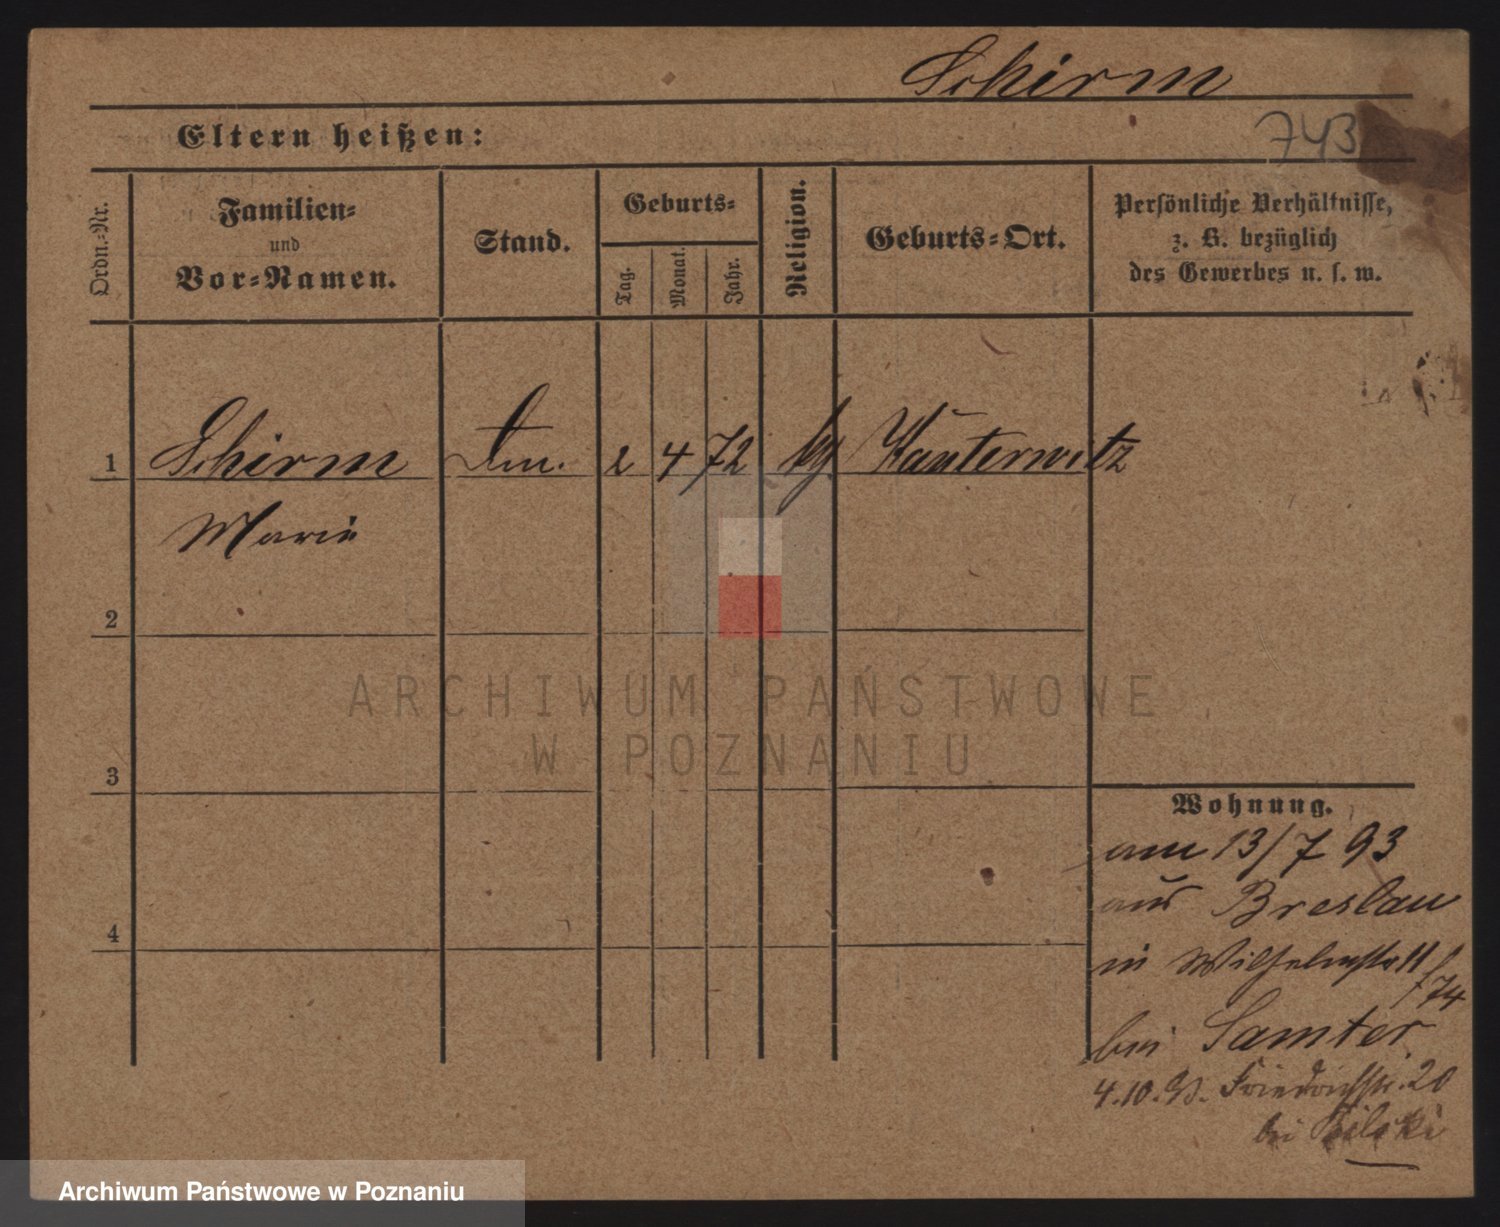 Schirm
743
Eltern heißen:
Ordn.-Nr.
Familien-
und
Vor-Namen.
Stand.
Geburts-
Tag.
Monat.
Jahr.
Religion.
Geburts-Ort.
Persönliche Verhältnisse,
z. B. bezüglich
des Gewerbes u. s. w.
1 Schirm 2 4 72
Marie
2
ARCHIWUM PAŃSTWOWE
W POZNANIU
3
Wohnung.
am 13/7 93
aus Breslau
4
in Wilhelmstr 11
bei Samter
4.10.93. Friedrichstr. 20
bei
Archiwum Państwowe w Poznaniu